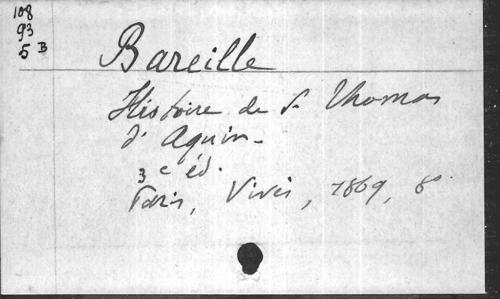 108
93
5 B
Bareille
Histoire de S. Thomas
d'Aquin.
3e éd.
Paris, Vivès, 1869, 8º